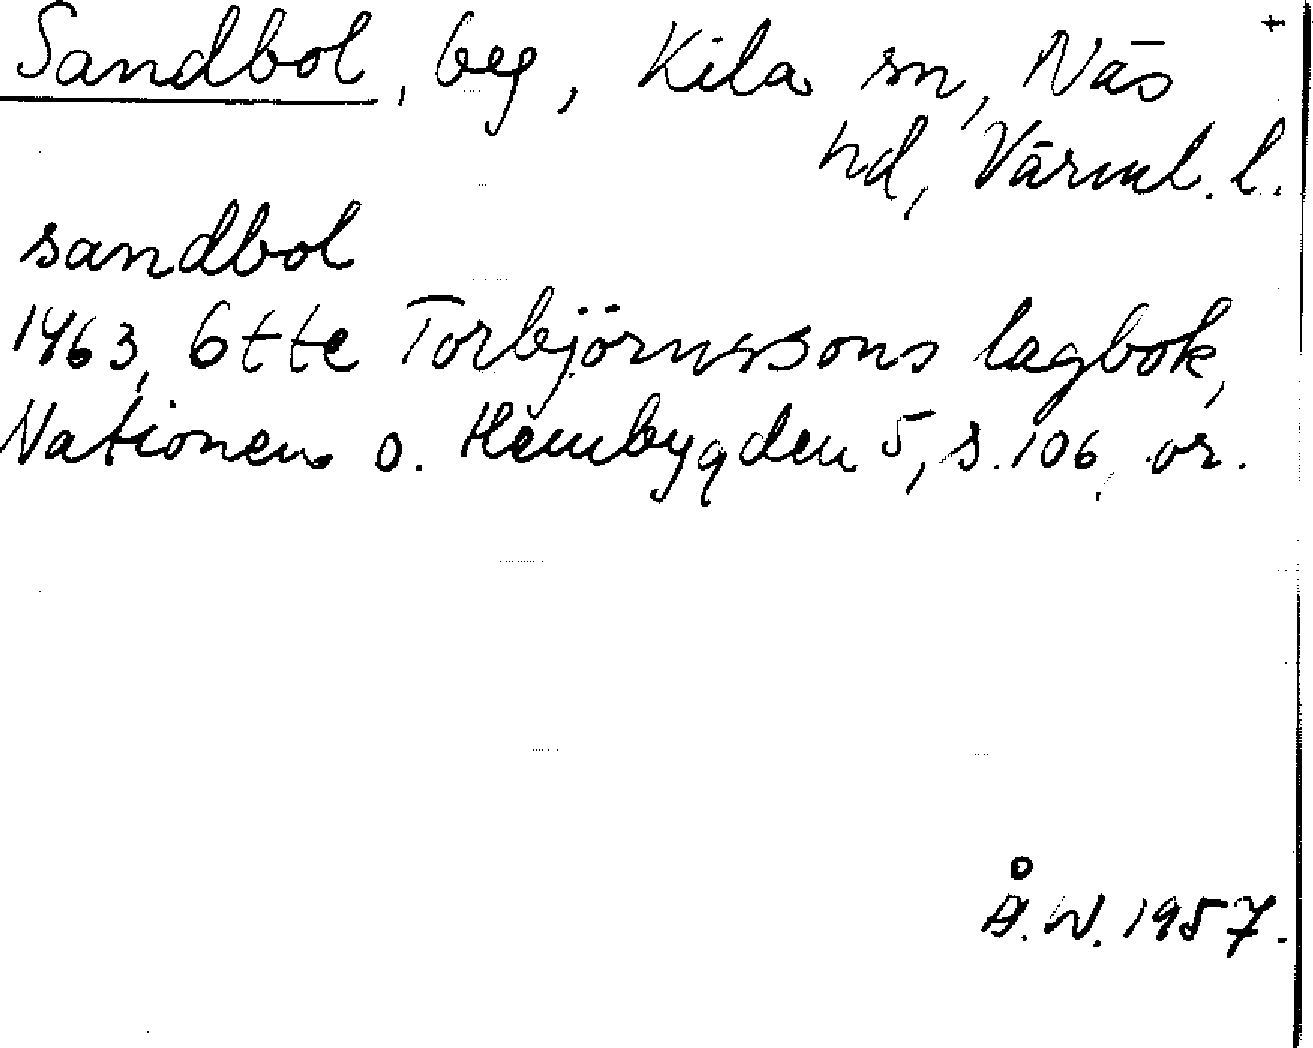 Sandbol, beg, Kila sn, Näs +
hd, Värml. l.
sandbol
1463, Otte Torbjörnssons lagbok,
Nationen o. Hembygden 5, s. 106, or.
Å.W. 1957.